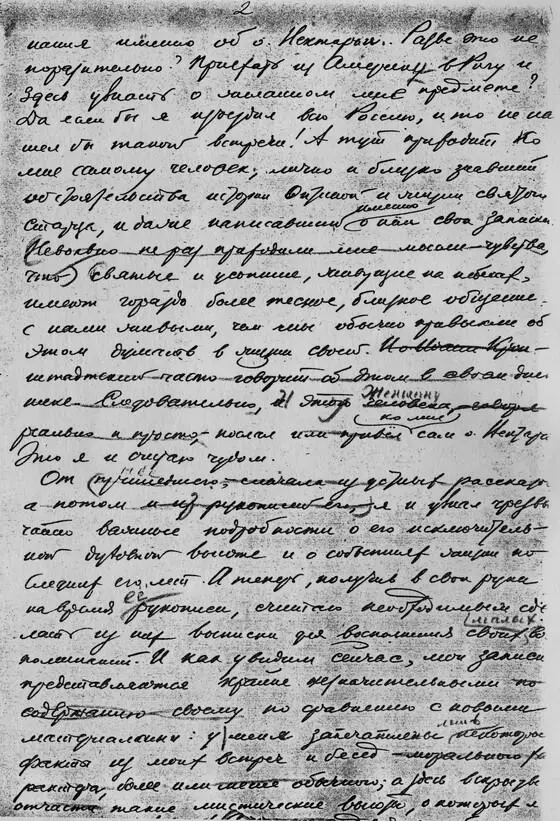 2
нания именно об о. Нектарии. Разве это не
поразительно? Приехать из Америки в Ригу и
здесь узнать о желанном мне предмете?
Да если бы я проездил всю Россию, и то не на
шел бы такой встречи! А тут приводит ко
мне самому человек, лично и близко знавший
обстоятельства истории Оптиной и жизни святого
именно
старца, и более написавший о нем свои записки.
Невольно не раз приходили мне мысли-чувства,
что святые и усопшие, живущие на небесах,
имеют гораздо более тесное, близкое общение
с нами живыми, чем мы обычно привыкли об
этом думать в жизни своей. Крон-
штадтский часто говорит об этом в своем днев
Женщину
нике. Следовательно, и эту человека,
ко мне
реально и просто послал или привёл сам о. Нектарий.
Это я и считаю чудом.
нее
От пришедшего, сначала из устных рассказов,
а потом и из рукописей его, я и узнал чрезвы
чайно важные подробности о его исключитель-
ной духовной высоте и о событиях жизни по
следних его лет. А теперь, получив в свои руки
ее
на время рукописи, считаю необходимым сде
малых
лать из них выписки для восполнения своих во
поминаний. И как увидим сейчас, мои записи
представляются крайне незначительными по
содержанию своему по сравнению с новыми
лишь
материалами: у меня запечатлены некоторые
факты из моих встреч и бесед морального ха
рактера, более или менее обычного; а здесь вскрыты
отчасти такие мистические высоты, о которых я